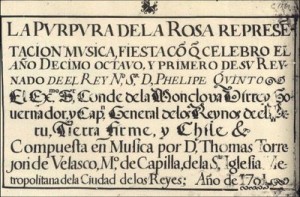 LA PVRPVRA DE LA ROSA REPRESE
TACION MVSICA, FIESTA CŌ Q̄ CELEBRO EL
AÑO DECIMO OCTAVO, Y PRIMERO DE SV REY
NADO DE EL REY Nº. Sº. D. PHELIPE QVINTO
El Ex.mo S.r Conde de la Monclova Virrey Go
vernador, y Cap.n General de los Reynos de el
Peru, Tierra Firme, y Chile &
Compuesta en Musica por D. Thomas Torre
jon de Velasco, M.º de Capilla, de la S.ta Iglesia Me
tropolitana de la Ciudad de los Reyes; Año de 1701